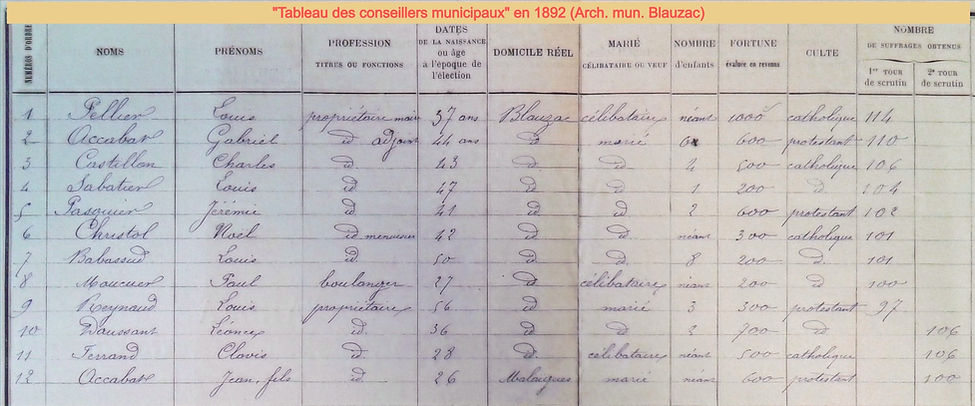 "Tableau des conseillers municipaux" en 1892 (Arch. mun. Blauzac)
NUMÉROS D'ORDRE NOMS PRÉNOMS PROFESSION TITRES OU FONCTIONS DATES DE LA NAISSANCE ou âge à l'époque de l'élection DOMICILE RÉEL MARIÉ CÉLIBATAIRE OU VEUF NOMBRE d'enfants FORTUNE évaluée en revenus CULTE NOMBRE DE SUFFRAGES OBTENUS 1er TOUR de scrutin 2e TOUR de scrutin
1 Pellier Louis propriétaire maire 37 ans Blauzac célibataire néant 1000 catholique 114
2 Accabat Gabriel id adjoint 44 ans d marié 600 protestant 110
3 Castillon Charles id 43 d d 4 500 catholique 106
4 Sabatier Louis id 47 d d 1 200 d 104
5 Pasquier Jérémie id 41 d d 2 600 protestant 102
6 Christol Noël id menuisier 42 d d néant 300 catholique 101
7 Babassud Louis id 50 d d 8 200 d 101
8 Maucuer Paul boulanger 27 d célibataire néant 200 d 100
9 Reynaud Louis propriétaire 56 d marié 3 300 protestant 97
10 Daussant Léonce id 36 d d 2 700 d 106
11 Ferrand Clovis id 28 d célibataire néant 500 catholique 106
12 Accabat Jean, fils id 26 Malaigues marié néant 600 protestant 100